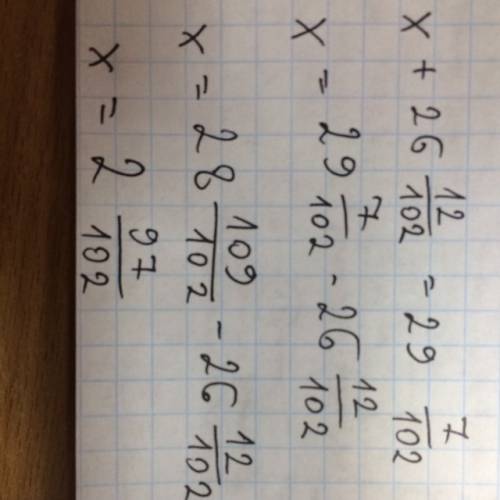 x + 26 12/102 = 29 7/102
x = 29 7/102 - 26 12/102
x = 28 109/102 - 26 12/102
x = 2 97/102